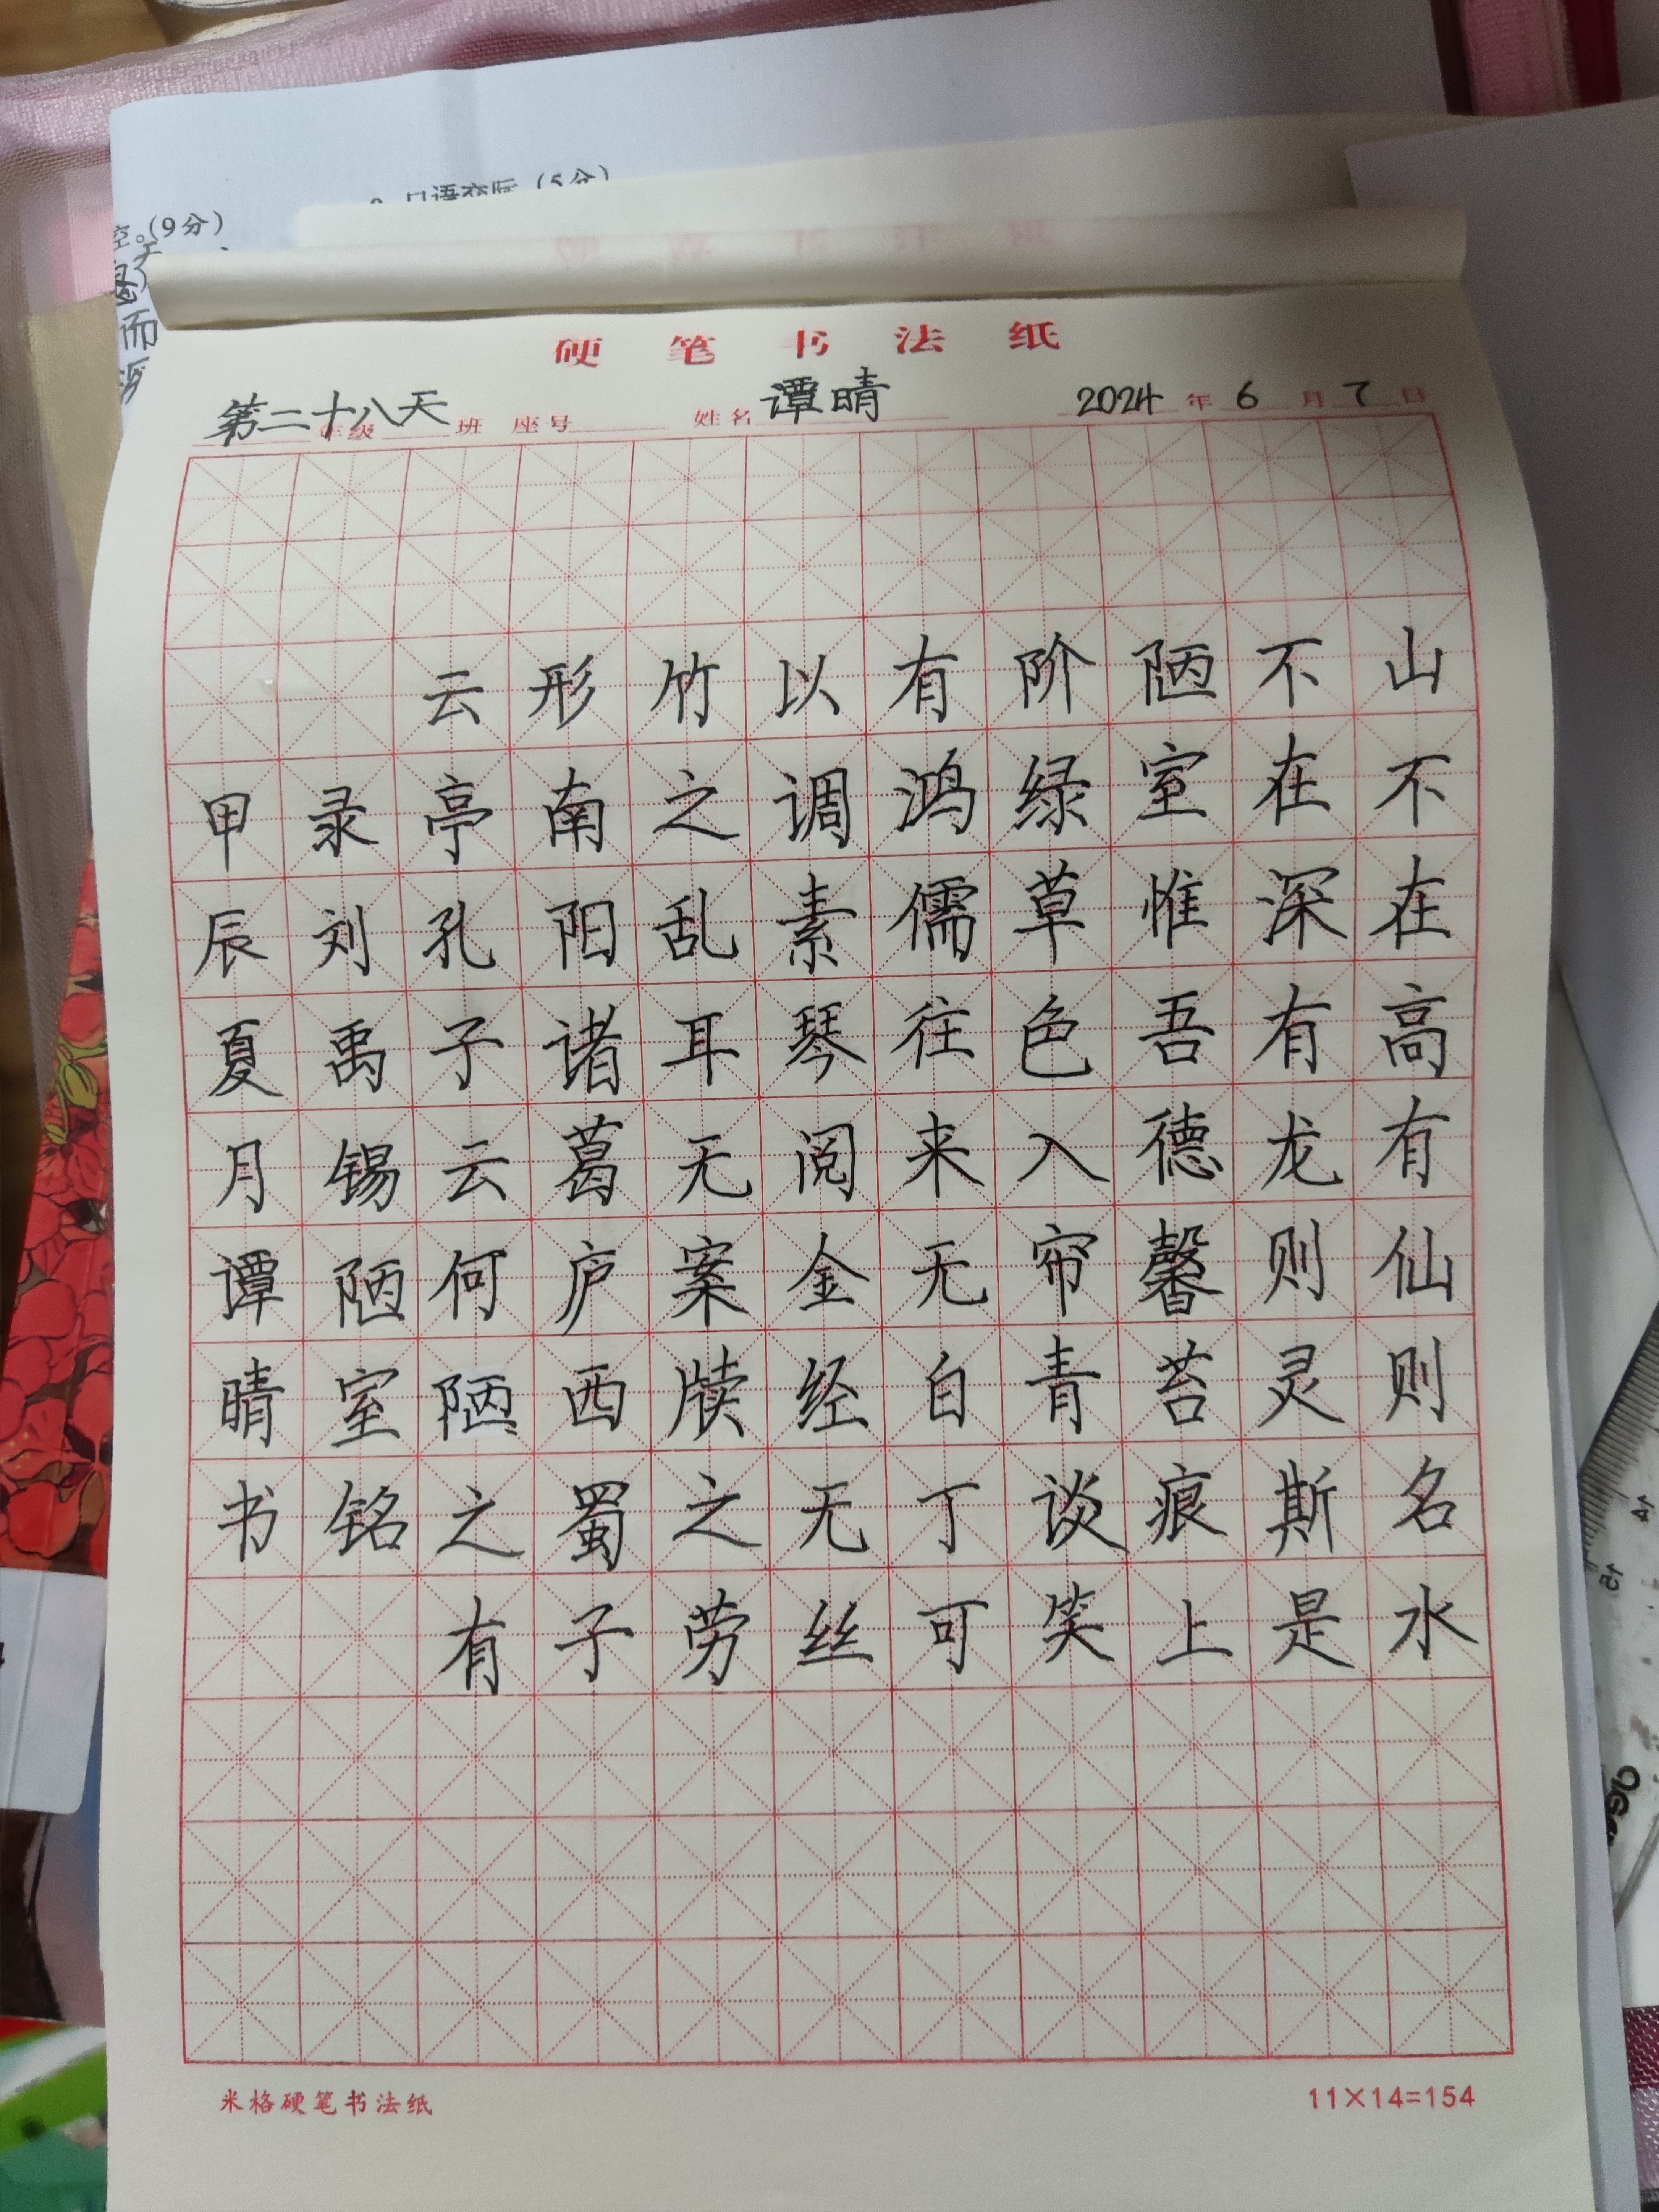 空。(9分)
而
硬笔书法纸
第二十八天 年级 班 座号 姓名 谭晴 2024年6月7日
山不在高有仙则名水
不在深有龙则灵斯是
陋室惟吾德馨苔痕上
阶绿草色入帘青谈笑
有鸿儒往来无白丁可
以调素琴阅金经无丝
竹之乱耳无案牍之劳
形南阳诸葛庐西蜀子
云亭孔子云何陋之有
录刘禹锡陋室铭
甲辰夏月谭晴书
米格硬笔书法纸
11×14=154